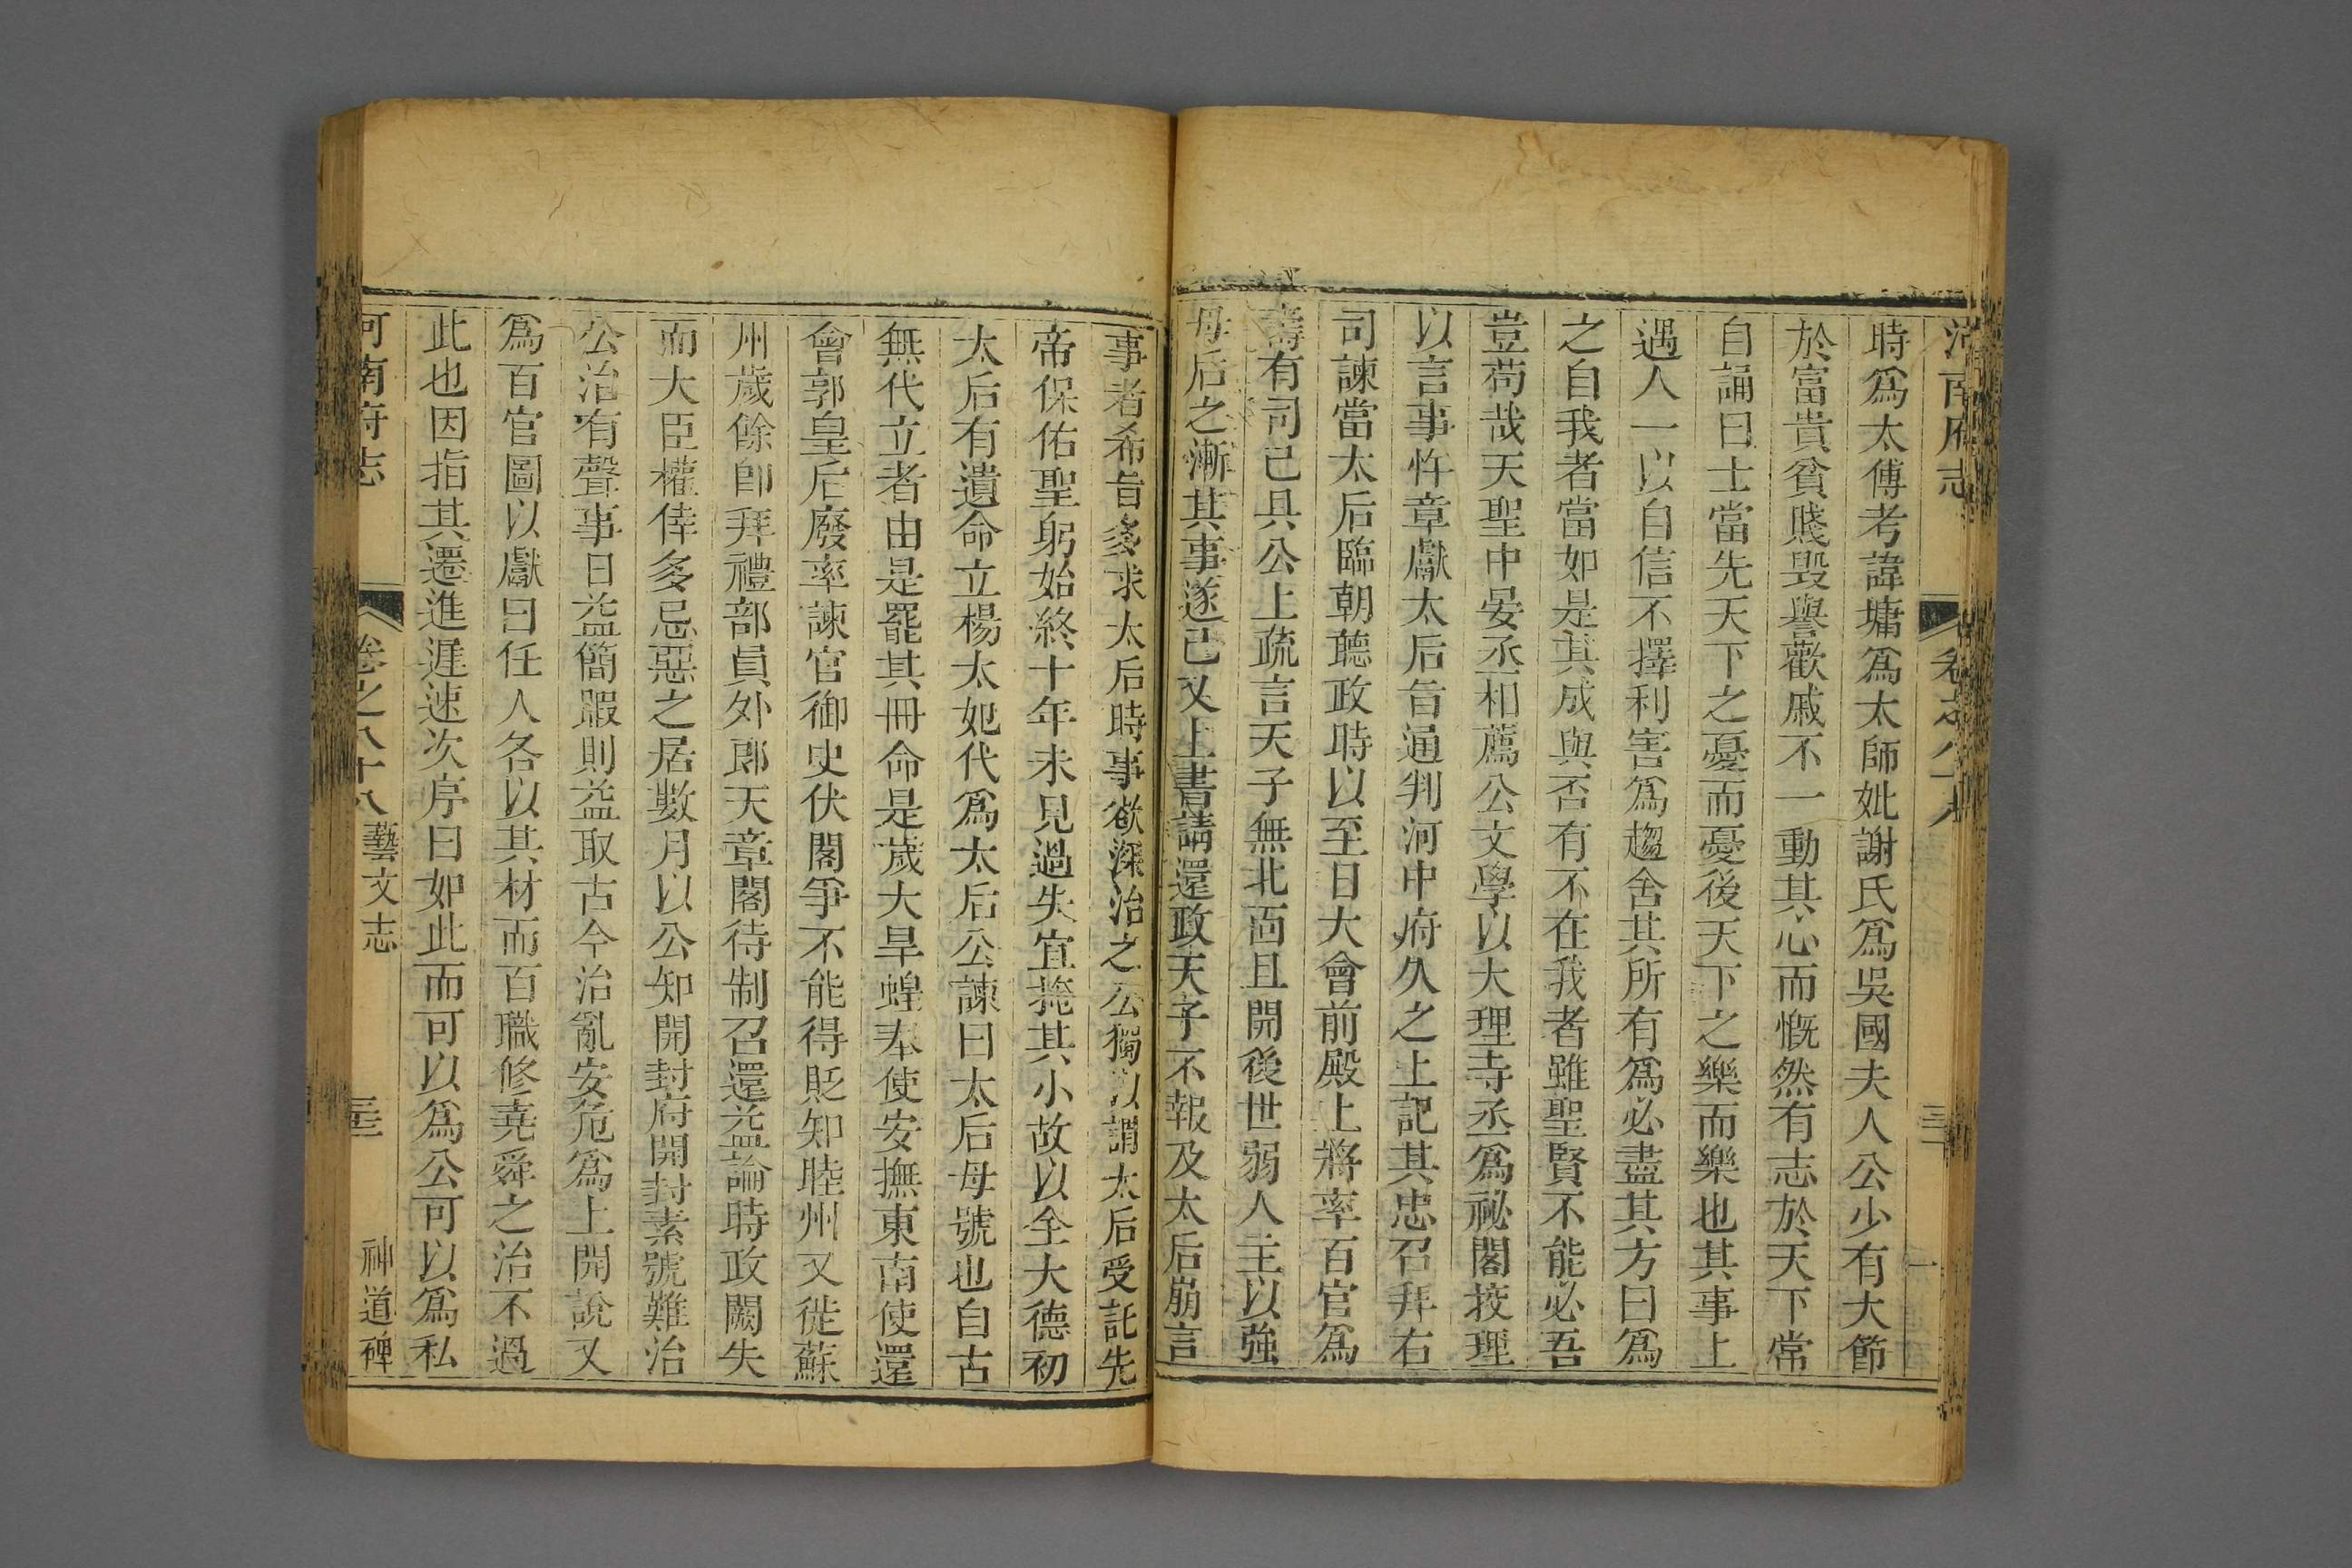 時爲太傅考諱墉爲太師妣謝氏爲吳國夫人公少有大節
於富貴貧賤毀譽歡戚不一動其心而慨然有志於天下常
自誦曰士當先天下之憂而憂後天下之樂而樂也其事上
遇人一以自信不擇利害爲趨舍其所有爲必盡其方曰爲
之自我者當如是其成與否有不在我者雖聖賢不能必吾
豈苟哉天聖中晏丞相薦公文學以大理寺丞爲祕閣挍理
以言事忤章獻太后旨通判河中府久之上記其忠召拜右
司諫當太后臨朝聽政時以至日大會前殿上將率百官爲
壽有司已具公上疏言天子無北面且開後世弱人主以強
母后之漸其事遂已又上書請還政天子不報及太后崩言
事者希旨多求太后時事欲深治之公獨以謂太后受託先
帝保佑聖躬始終十年未見過失宜掩其小故以全大德初
太后有遺命立楊太妃代爲太后公諫曰太后母號也自古
無代立者由是罷其冊命是歲大旱蝗奉使安撫東南使還
會郭皇后廢率諫官御史伏閣爭不能得貶知睦州又徙蘇
州歲餘即拜禮部員外郎天章閣待制召還益論時政闕失
而大臣權倖多忌惡之居數月以公知開封府開封素號難治
公治有聲事日益簡暇則益取古今治亂安危爲上開說又
爲百官圖以獻曰任人各以其材而百職修堯舜之治不過
此也因指其遷進遲速次序曰如此而可以爲公可以爲私
河南府志 卷之八十八 藝文志 神道碑